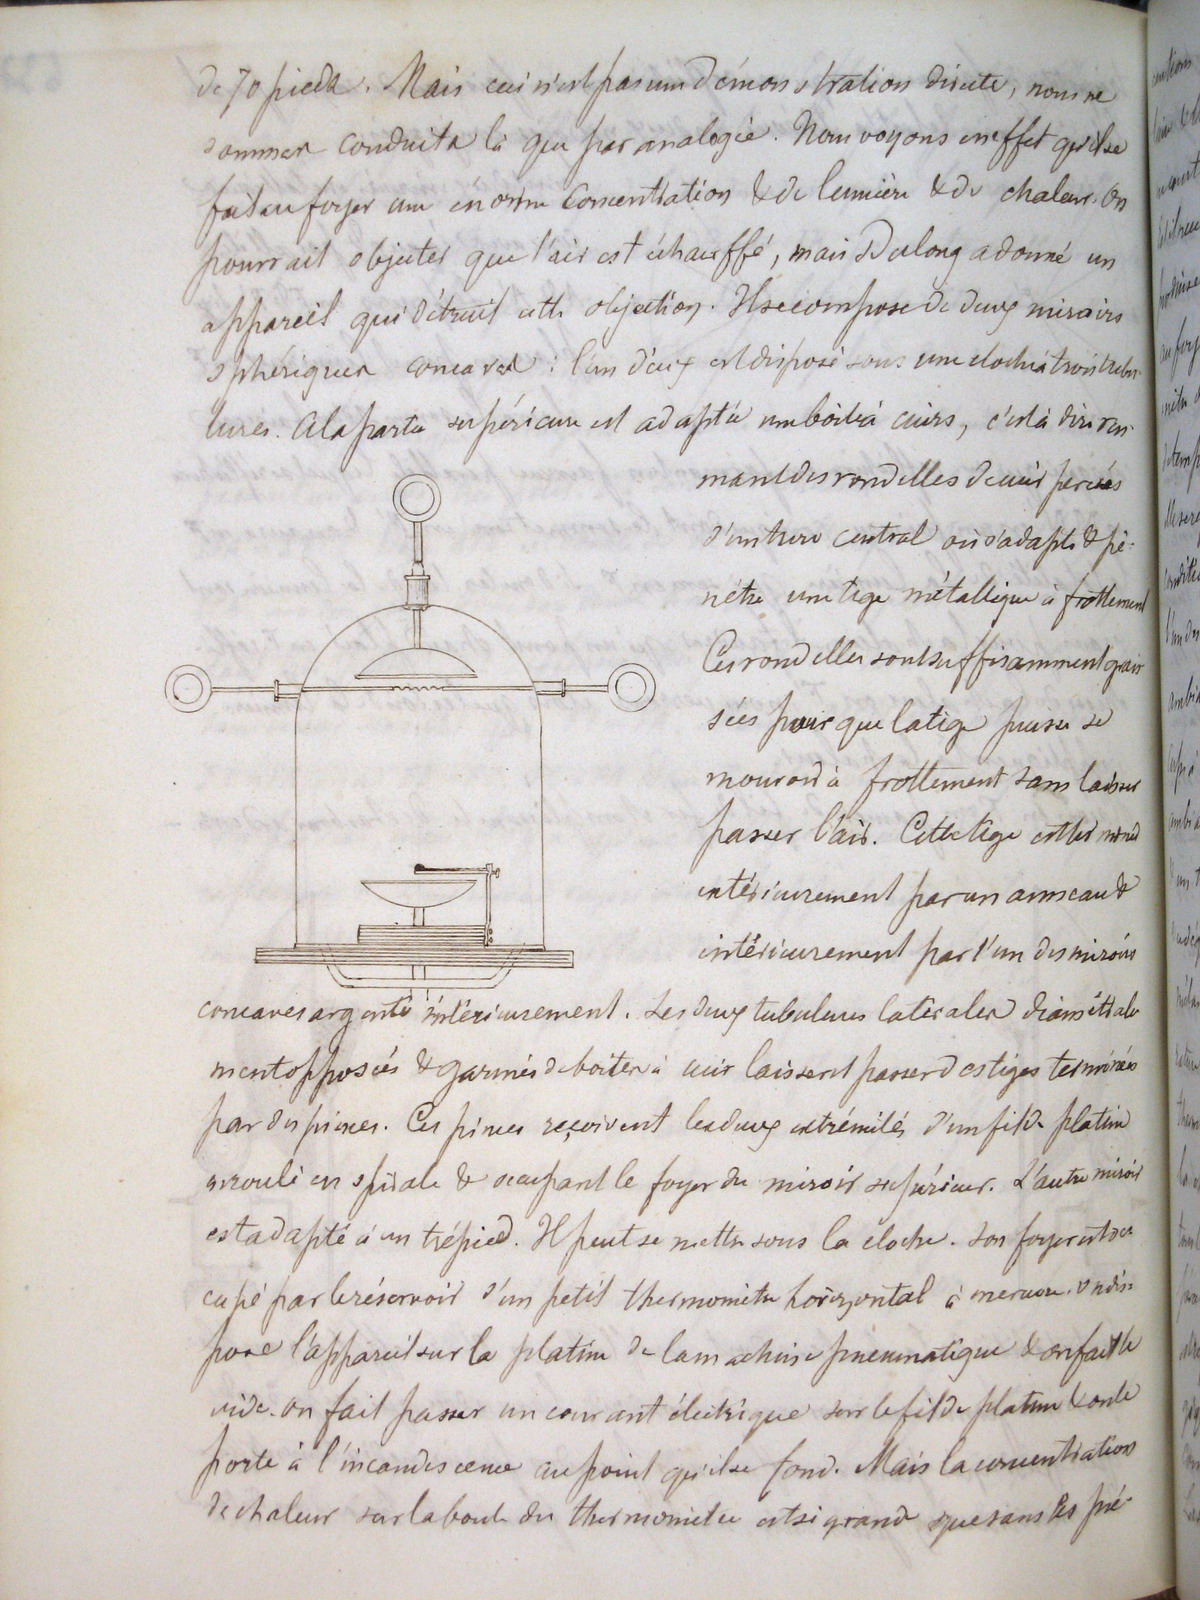 de 70 pieds. Mais ceci n'est pas une démonstration directe, nous ne
sommes conduits là que par analogie. Nous voyons en effet qu'il se
fait au foyer une énorme concentration & de lumière & de chaleur. On
pourrait objecter que l'air est échauffé, mais Dulong a donné un
appareil qui détruit cette objection. Il se compose de deux miroirs
sphériques concaves : l'un d'eux est disposé sous une cloche à trois tubu-
lures. A la partie supérieure est adaptée une boite à cuirs, c'est à dire ren-
mant des rondelles de cuir percées
d'un trou central où s'adapte & pé-
nétre une tige métallique à frottement
Ces rondelles sont suffisamment grais
sées pour que la tige puisse se
mouvoir à frottement sans laisser
passer l'air. Cette tige est terminée
extérieurement par un anneau &
intérieurement par l'un des miroirs
concaves argenté intérieurement. Les deux tubulures latérales diamétrale
ment opposées & garnies de boites à cuir laissent passer des tiges terminées
par des pinces. Ces pinces reçoivent les deux extrémités d'un fil de platine
enroulé en spirale & occupant le foyer du miroir supérieur. L'autre miroir
est adapté à un trépied. Il peut se mettre sous la cloche. Son foyer est oc
cupé par le réservoir d'un petit thermomètre horizontal à mercure. On dis-
pose l'appareil sur la platine de la machine pneumatique & on fait le
vide. On fait passer un courant électrique sur le fil de platine & on le
porte à l'incandescence au point qu'il se fond. Mais la concentration
de chaleur sur la boule du thermomètre est si grande que sans les pré-